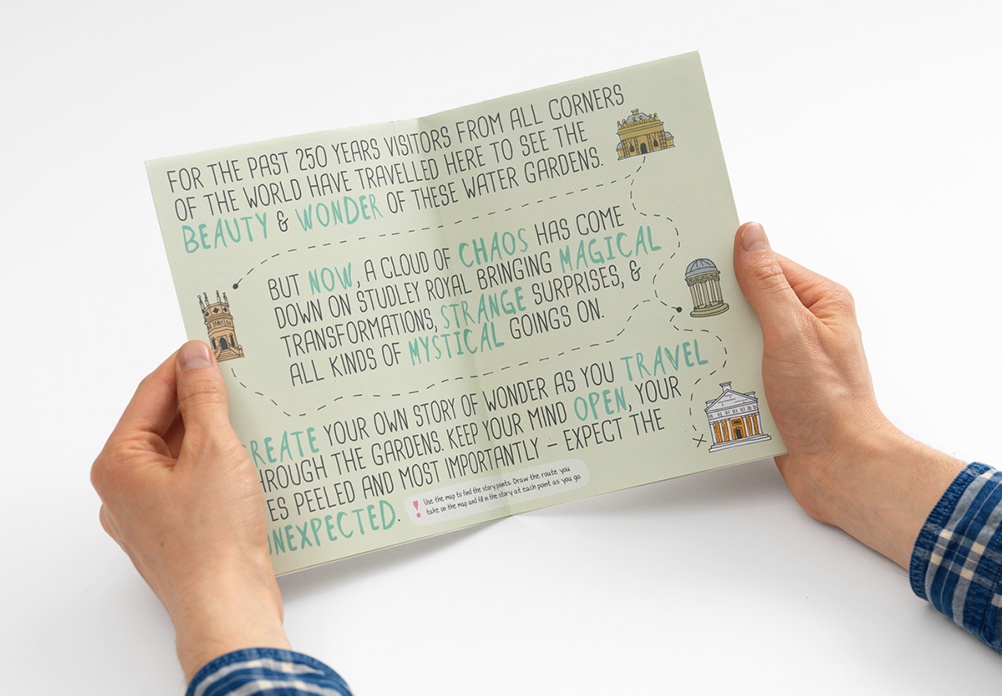 FOR THE PAST 250 YEARS VISITORS FROM ALL CORNERS
OF THE WORLD HAVE TRAVELLED HERE TO SEE THE
BEAUTY & WONDER OF THESE WATER GARDENS.
BUT NOW, A CLOUD OF CHAOS HAS COME
DOWN ON STUDLEY ROYAL BRINGING MAGICAL
TRANSFORMATIONS, STRANGE SURPRISES, &
ALL KINDS OF MYSTICAL GOINGS ON.
REATE YOUR OWN STORY OF WONDER AS YOU TRAVEL
HROUGH THE GARDENS. KEEP YOUR MIND OPEN, YOUR
ES PEELED AND MOST IMPORTANTLY – EXPECT THE
NEXPECTED.
! Use the map to find the story points. Draw the route you
take on the map and fill in the story at each point as you go